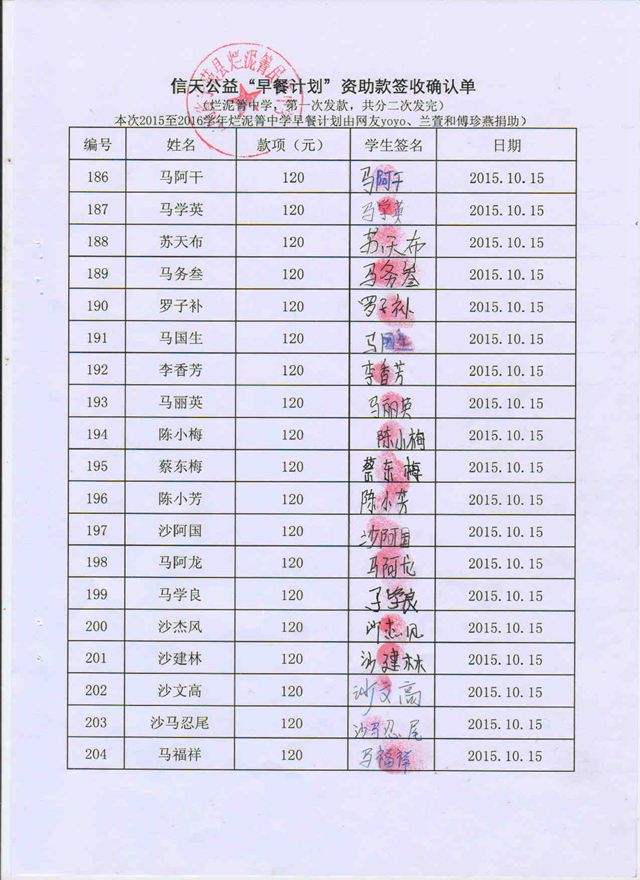 信天公益“早餐计划”资助款签收确认单
（烂泥箐中学，第一次发款，共分二次发完）
本次2015至2016学年烂泥箐中学早餐计划由网友yoyo、兰萱和傅珍燕捐助）
编号 姓名 款项（元） 学生签名 日期
186 马阿干 120 马阿干 2015.10.15
187 马学英 120 马学英 2015.10.15
188 苏天布 120 苏天布 2015.10.15
189 马务叁 120 马务叁 2015.10.15
190 罗子补 120 罗子补 2015.10.15
191 马国生 120 马国生 2015.10.15
192 李香芳 120 李香芳 2015.10.15
193 马丽英 120 马丽英 2015.10.15
194 陈小梅 120 陈小梅 2015.10.15
195 蔡东梅 120 蔡东梅 2015.10.15
196 陈小芳 120 陈小芳 2015.10.15
197 沙阿国 120 沙阿国 2015.10.15
198 马阿龙 120 马阿龙 2015.10.15
199 马学良 120 马学良 2015.10.15
200 沙杰风 120 沙杰风 2015.10.15
201 沙建林 120 沙建林 2015.10.15
202 沙文高 120 沙文高 2015.10.15
203 沙马忍尾 120 沙马忍尾 2015.10.15
204 马福祥 120 马福祥 2015.10.15